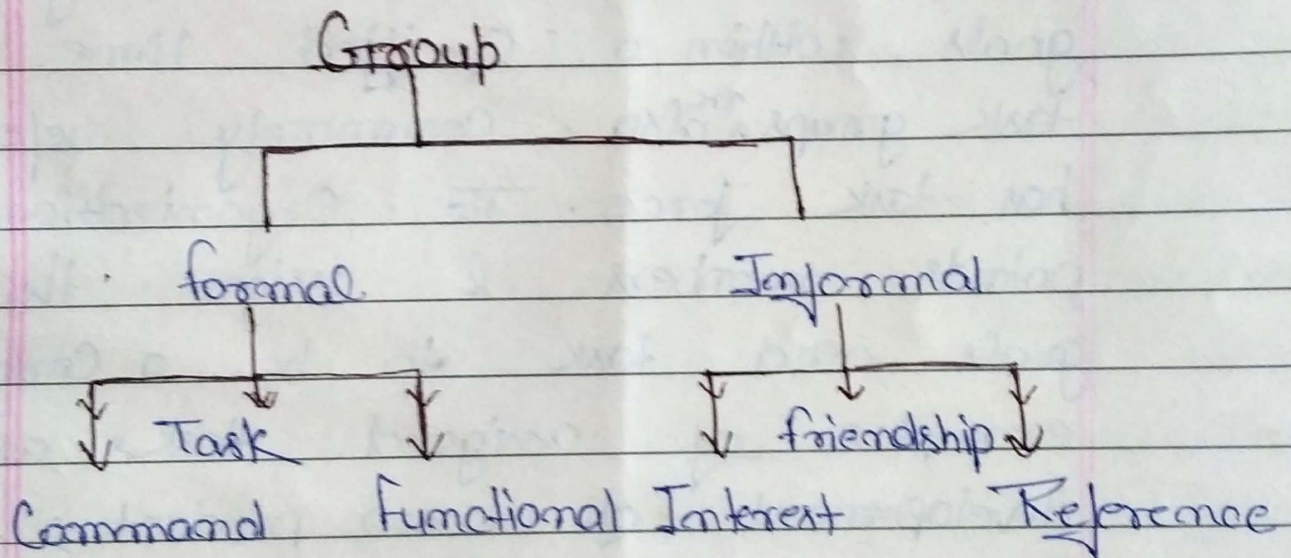 Group
formal
Informal
Task
friendship
Command
Functional
Interest
Reference